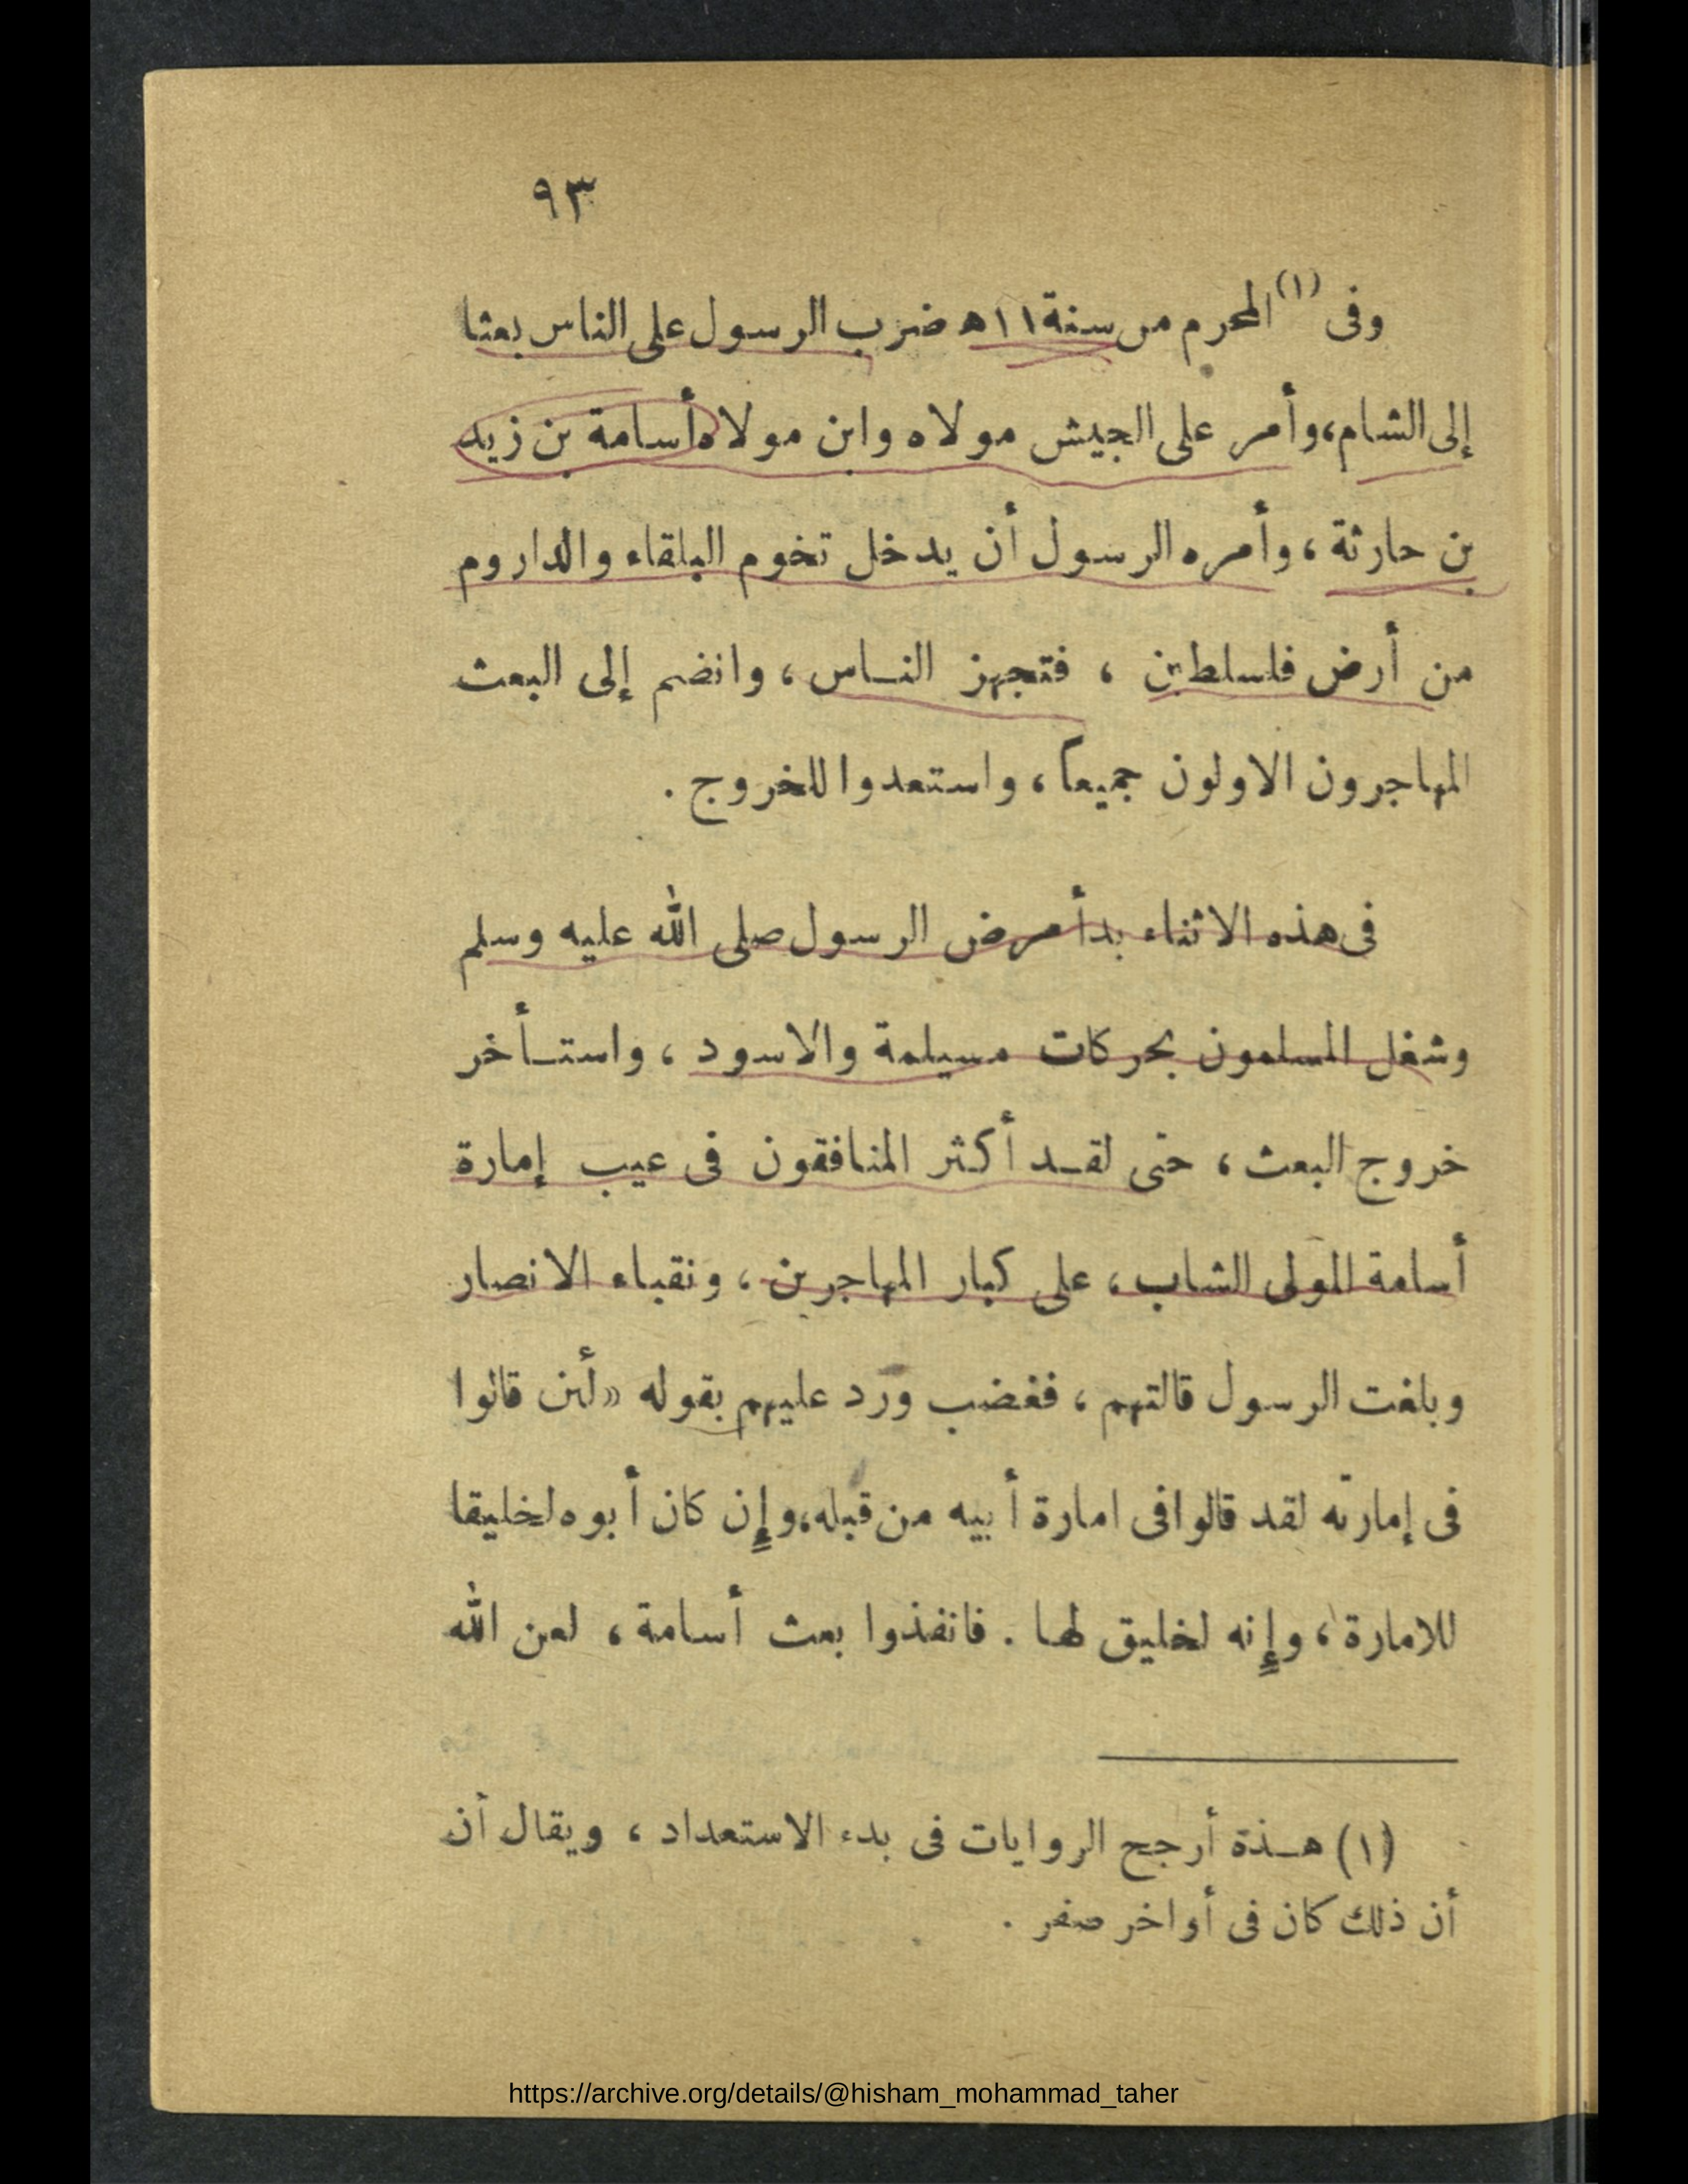 ٩٣
وفى (١) المحرم من سنة ١١ ه ضرب الرسول على الناس بعثا
إلى الشام، وأمر على الجيش مولاه وابن مولاه أسامة بن زيد
بن حارثة ، وأمره الرسول أن يدخل تخوم البلقاء والداروم
من أرض فلسطين ، فتجهز النـاس ، وانضم إلى البعث
المهاجرون الاولون جميعاً ، واستعدوا للخروج .
فى هذه الاثناء بدأ مرض الرسول صلى الله عليه وسلم
وشغل المسلمون بحركات مسيلمة والاسود ، واستـأخر
خروج البعث ، حتى لقـد أكثر المنافقون فى عيب إمارة
أسامة المولى الشاب ، على كبار المهاجرين ، ونقباء الانصار
وبلغت الرسول قالتهم ، فغضب ورد عليهم بقوله «لأن قالوا
فى إمارته لقد قالوا فى امارة أبيه من قبله، وإِن كان أبوه لخليقا
للامارة ، وإِنه لخليق لها . فانفذوا بعث أسامة ، لعن الله
(١) هـذة أرجح الروايات فى بدء الاستعداد ، ويقال أن
أن ذلك كان فى أواخر صفر .
https://archive.org/details/@hisham_mohammad_taher